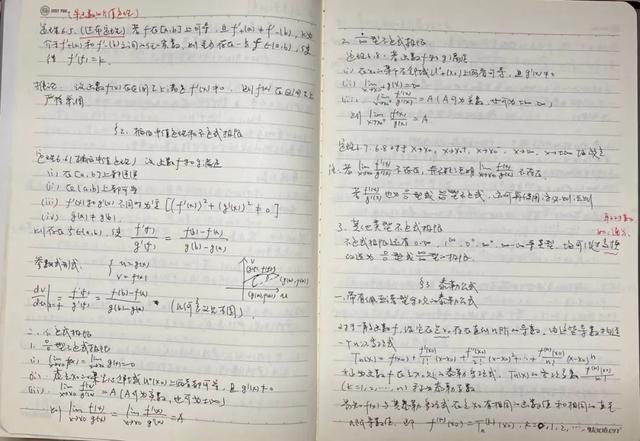 (导函数的介值定理)
定理6.5 (达布定理) 若f在[a,b]上可导,且f'₊(a)≠f'₋(b), k为
介于f'₊(a)和f'₋(b)之间任一实数,则至少存在一点ξ∈(a,b),使
得 f'(ξ)=k.
推论: 设函数f(x)在区间I上满足f'(x)≠0. 则f(x)在区间I上
严格单调
§2. 柯西中值定理和不定式极限
定理6.6(柯西中值定理) 设函数f和g满足
(i) 在[a,b]上都连续
(ii) 在(a,b)上都可导
(iii) f'(x)和g'(x)不同时为零 [(f'(x))²+(g'(x))²≠0]
(iv) g(a)≠g(b).
则存在ξ∈(a,b),使 f'(ξ)/g'(ξ) = f(b)-f(a)/g(b)-g(a)
参数式形式. { u=g(x) v=f(x)
= f'(ξ)/g'(ξ) = f(b)-f(a)/g(b)-g(a) . (几何意义不同).
二. 不定式极限
1. 0/0型不定式极限
(i) lim x→x₀ f(x) = lim x→x₀ g(x)=0
(ii) 在点x₀的某空心邻域U°(x₀)上两者都可导,且g'(x)≠0
(iii) lim x→x₀ f'(x)/g'(x) = A (A可为实数,也可为±∞)
则 lim x→x₀ f(x)/g(x) = lim x→x₀ f'(x)/g'(x) = A
2. 型不定式极限
定理6.8. 若函数f和g满足
(i) 在x₀的某个右邻域U°₊(x₀)上两者可导,且g'(x)≠0
(ii) lim g(x)=∞
(iii) lim f'(x)/g'(x) = A (A可为实数,也可为±∞,∞)
则 lim f(x)/g(x) = A.
定理6.7, 6.8对于
注: 若 lim f'(x)/g'(x) 不存在,并不能说明 lim f(x)/g(x) 不存在.
若 f'(x)/g'(x) 也为0/0型或∞/∞型不定式,
3. 其他类型不定式极限
不定式极限还有0·∞, 1^∞, 0⁰, ∞⁰, ∞-∞等类型,
化为0/0型或∞/∞型极限.
§3 泰勒公式
一. 带有佩亚诺型余项的泰勒公式
对于一般函数f, 设它在点x₀存在直到n阶的导数, 由这些导数构造
一个n次多项式
Tn(x)=f(x₀)+f'(x₀)/1!(x-x₀)+f''(x₀)/2!(x-x₀)²+…+f⁽ⁿ⁾(x₀)/n!(x-x₀)ⁿ
称为函数f在点x₀处的泰勒多项式, Tn(x)的各项系数
(k=1,2,…,n) 称为泰勒系数
易知f(x)与其泰勒多项式在点x₀有相同的函数值和相同的直至
n阶导数值, 即 f⁽ᵏ⁾(x₀)=Tn⁽ᵏ⁾(x₀), k=0,1,2,…,n